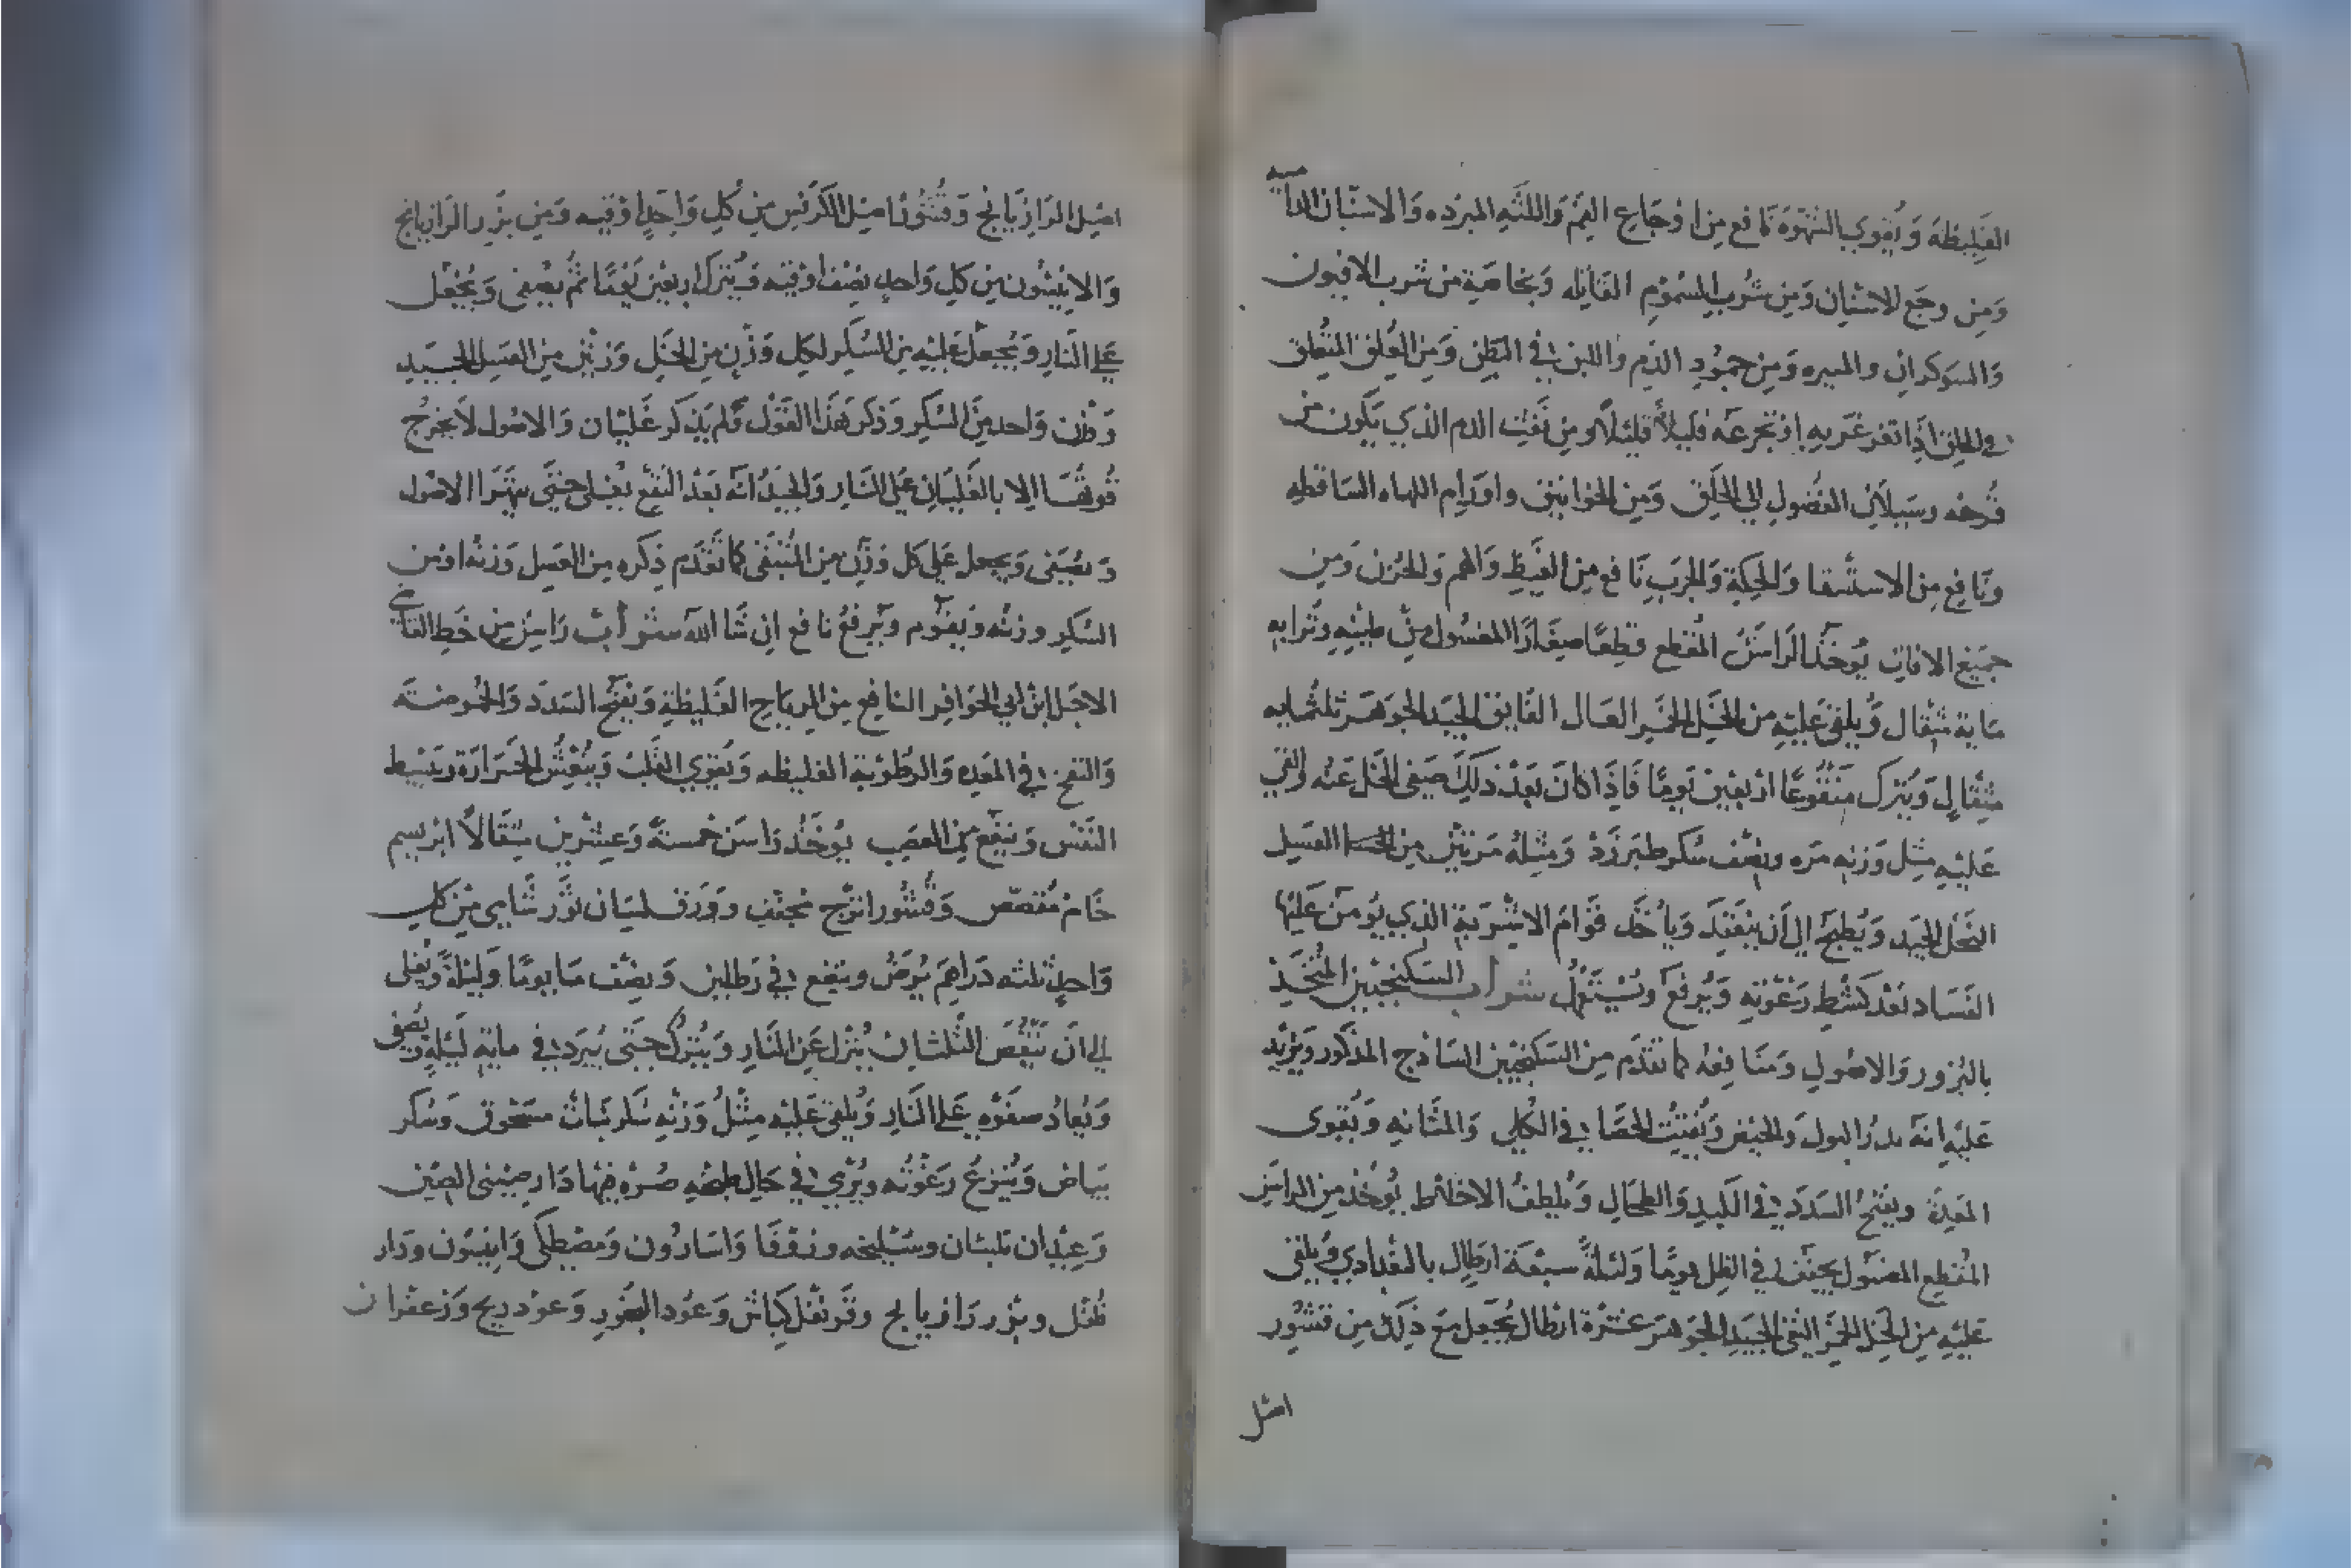 الغليظة ويقوي الشهوة نافع من اوجاع الفم واللثه المبرده والاسنان الداميه
ومن وجع الاسنان ومن شرب السموم القاتله وبخاصة من شرب الافيون
والسوكران والمبيره ومن جمود الدم واللبن في البطن ومن العلق المتعلق
في الحلق اذا تغرغر به او تجرعه قليلا قليلا ومن نفث الدم الذي يكون من
قرحه وسيلان الفضول الي الحلق ومن الخوانيق واورام اللهاه الساقطه
ونافع من الاستسقا والحكة والجرب نافع من الغيظ والهم والحزن ومن
جميع الافات يوخذ الراسن المقطع قطعا صغارا المغسول من طينه وترابه
ماية مثقال ويلقى عليه من الخل الخمر العال الفايق الجيد الجوهر ثلثمايه
مثقال ويترك منقوعا اربعين يوما فاذا كان بعد ذلك صفى الخل عنه والقي
عليه مثل وزنه مره ونصف سكر طبرزد ومثله مرتين من العسل
النحل الجيد ويطبخ الى ان ينعقد وياخذ قوام الاشربة الذي يومن عليها
الفساد بعد كشط رغوته ويرفع ويستعمل شراب السكنجبين المتخذ
بالبزور والاصول ومنافعه كما تقدم من السكنجبين الساذج المذكور ويزيد
عليه انه يدر البول والحيض ويفتت الحصا في الكلى والمثانه ويقوى
المعدة ويفتح السدد في الكبد والطحال ويلطف الاخلاط يوخذ من الراسن
المقطع المغسول يجفف في الظل يوما وليلة سبعة ارطال بالبغدادي ويلقى
عليه من الخل الخمر النقى الجيد الجوهر عشرة ارطال يجعل مع ذلك من قشور
اصل
اصل الرازيانج وقشور اصل الكرفس من كل واحد اوقيه ومن بزر الرازيانج
والانيسون من كل واحد نصف اوقيه ويترك اربعين يوما ثم يصفى ويجعل
على النار ويجعل عليه من السكر لكل وزن من الخل وزنين من العسل الجيد
وزن واحد من السكر وذكر هذا القول ولم يذكر غليان والاصول لا يخرج
قوتها الا بالغليان على النار والجيد انه بعد النقع يغلى حتى يتهرا الاصول
ويصفى ويجعل على كل وزن من المتبقى كما تقدم ذكره من العسل وزنه اومن
السكر وزنه ويقوم ويرفع نافع ان شا الله شراب راسن من خط القاضي
الاجل ابن ابي الحوافر النافع من الرياح الغليظة ويفتح السدد والحموضه
والنفخ في المعده والرطوبة الغليظه ويقوي القلب وينعش الحرارة وينبسط
النفس وينفع من العصب يوخذ راسن خمسة وعشرين مثقالا ابريسم
خام مقصص وقشور اترج مجفف وورق لسان ثور شامي من كل
واحد ثلثه دراهم يرض وينقع في رطلين ونصف ما يوما وليلة ويغلى
الى ان ينقص الثلثان ينزل عن النار ويترك حتى يبرد في مايه ليله ويصفى
ويعاد صفوه على النار ويلقى عليه مثل وزنه سكر نبات مسحوق وسكر
بياض وينزع رغوته ويرمي في حال طبخه صره فيها دار صينى الصين
وعيدان بلسان وسليخه وزرقفا واسارون ومصطكى وانيسون ودار
فلفل وبزر رازيانج وقرنفل كباش وعود البخور وعود ريح وزعفران